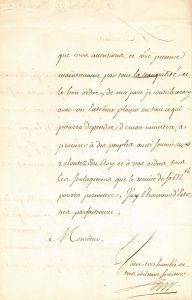 que vos attentions et vôtre presence
maintiennent par tout la tranquilité et
le bon ordre, de ma part je contribueray
avec un extrême plaisir en tout ce qui
pourra dependre de mon ministere, a
procurer a des peuples aussi soumis aux
volontez du Roy et a vos ordres, tous
les soulagemens que le service de Sa Mté
pourra permettre. J'ay l'honneur d'être
ma parfaitement,
Monsieur,
Votre tres humble et
tres obeissant serviteur